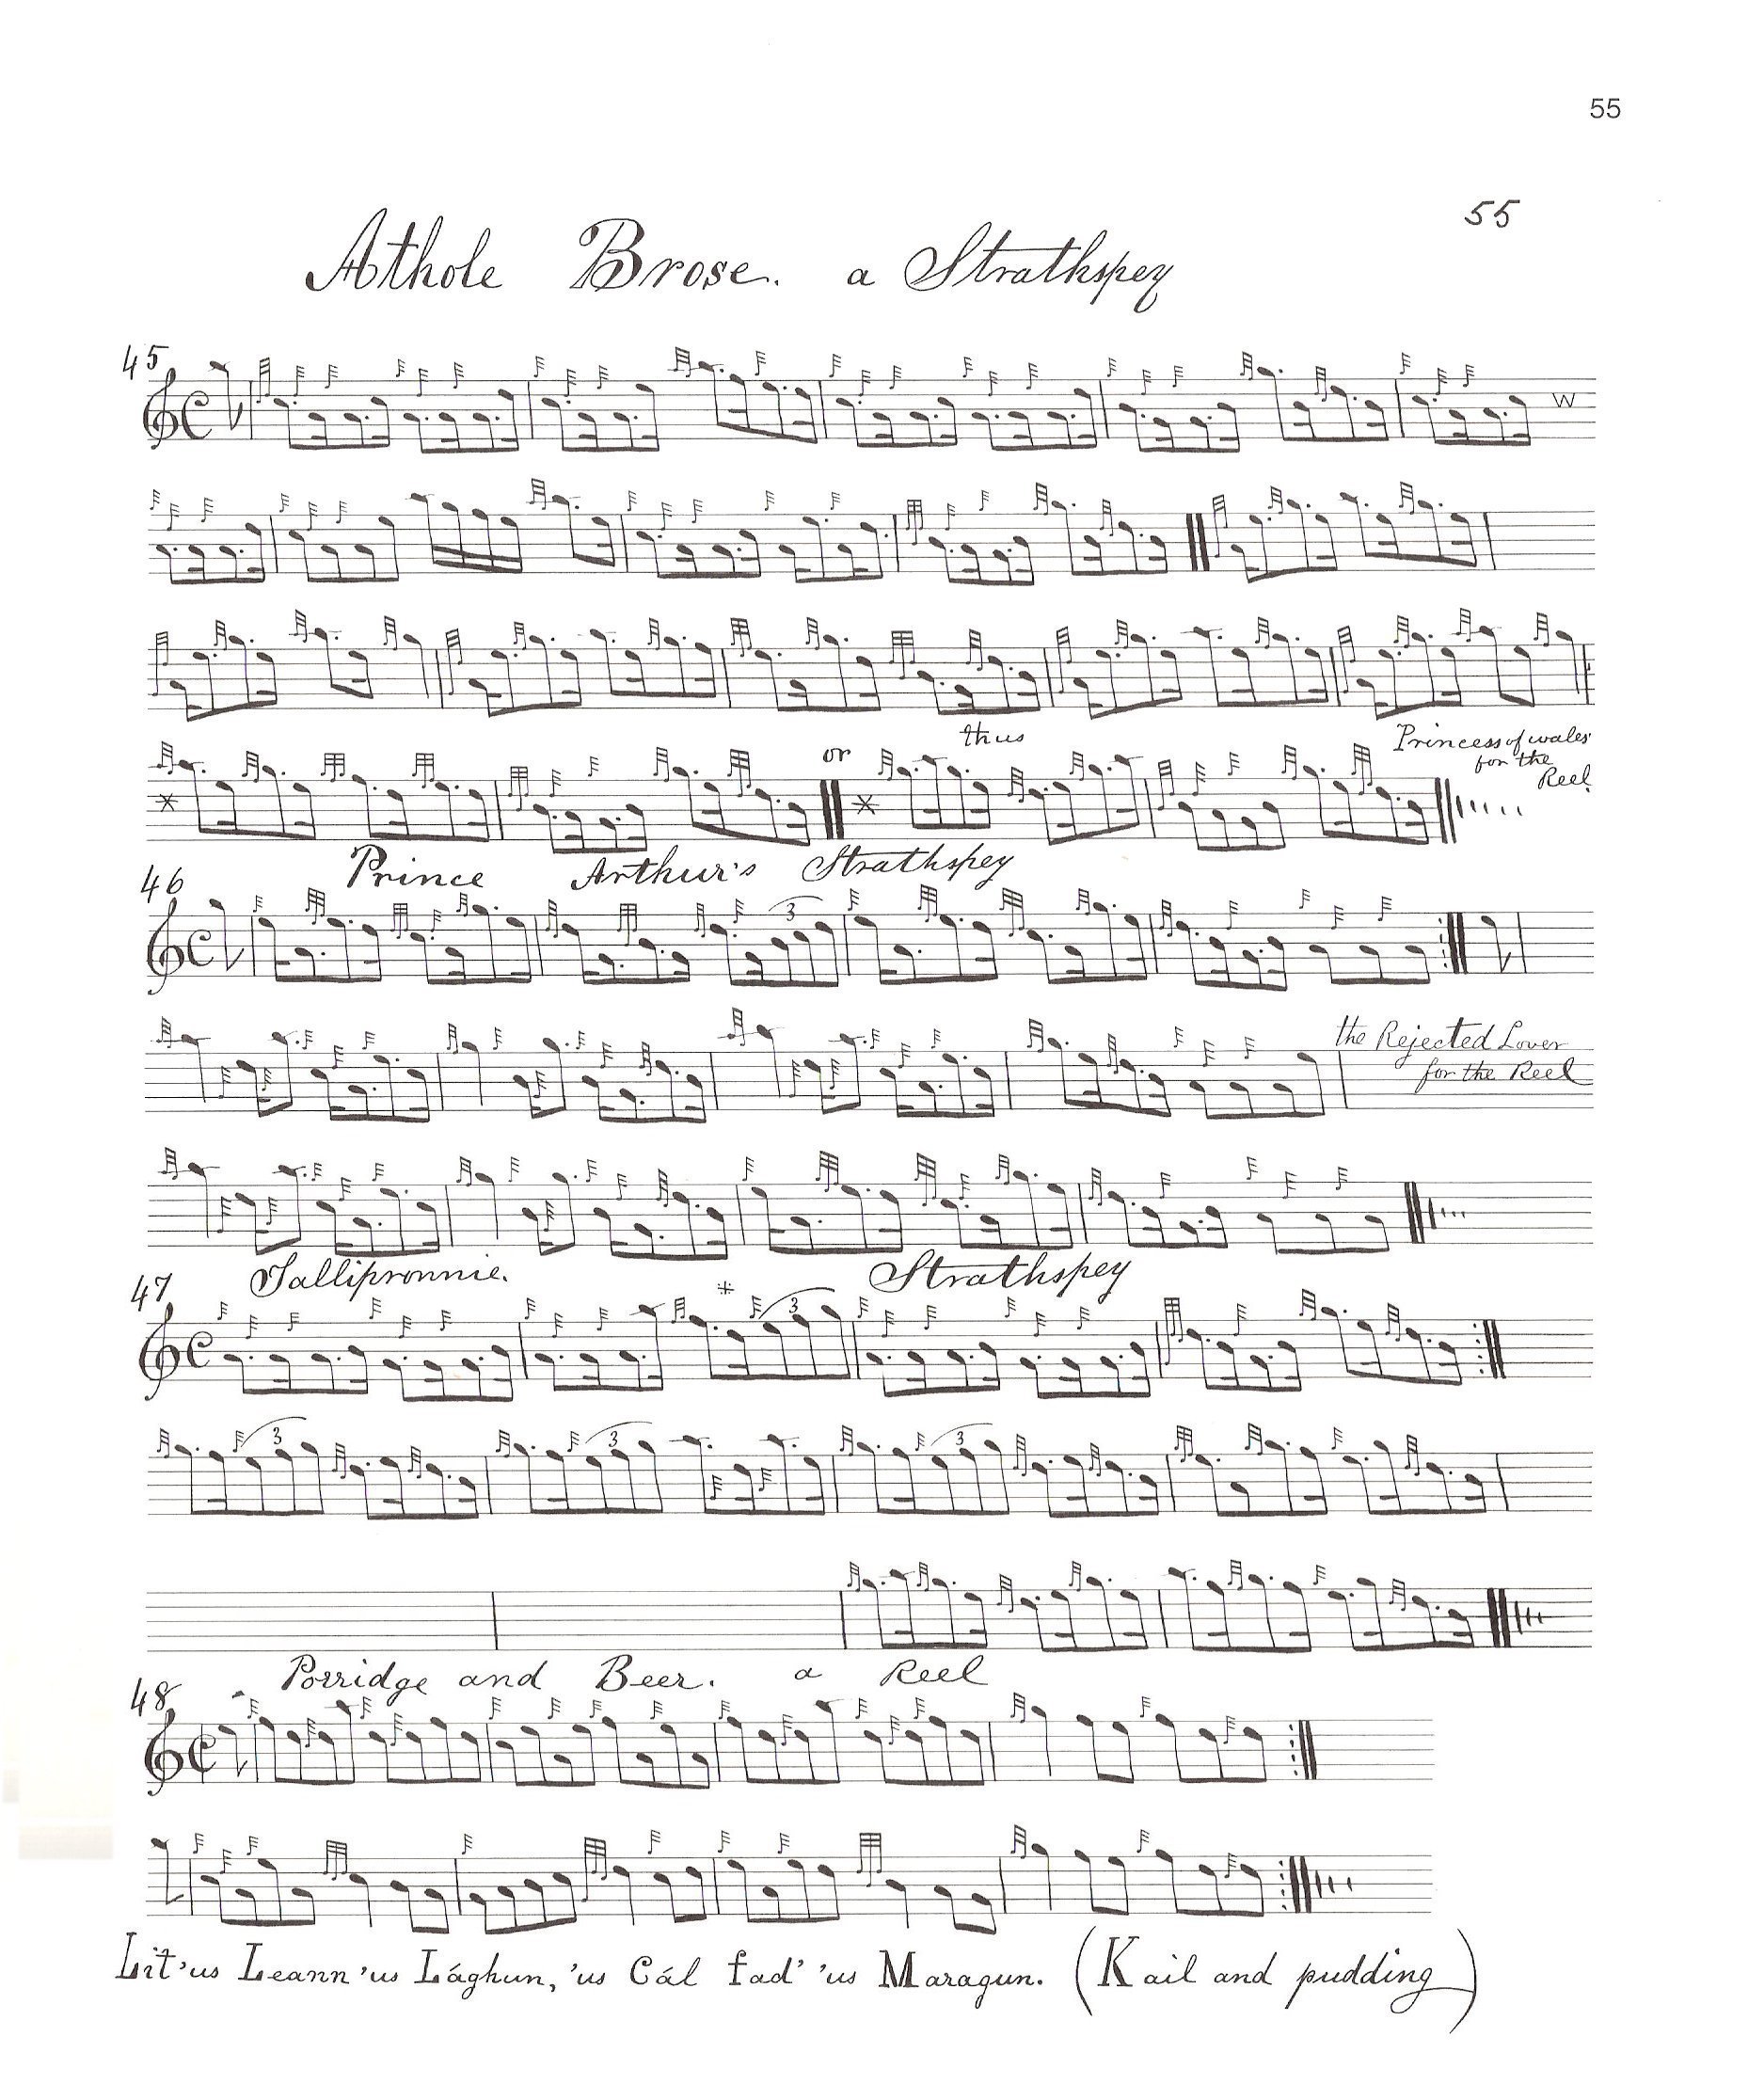 55
55
Athole Brose. a Strathspey
45
or thus
Princess of wales
for the
Reel
46 Prince Arthur's Strathspey
3
the Rejected Lover
for the Reel
47 Tallipronnie. Strathspey
3
3 3 3
48 Porridge and Beer. a Reel
Lit 'us Leann 'us Lághun, 'us Cál fad' 'us Maragun. (Kail and pudding)